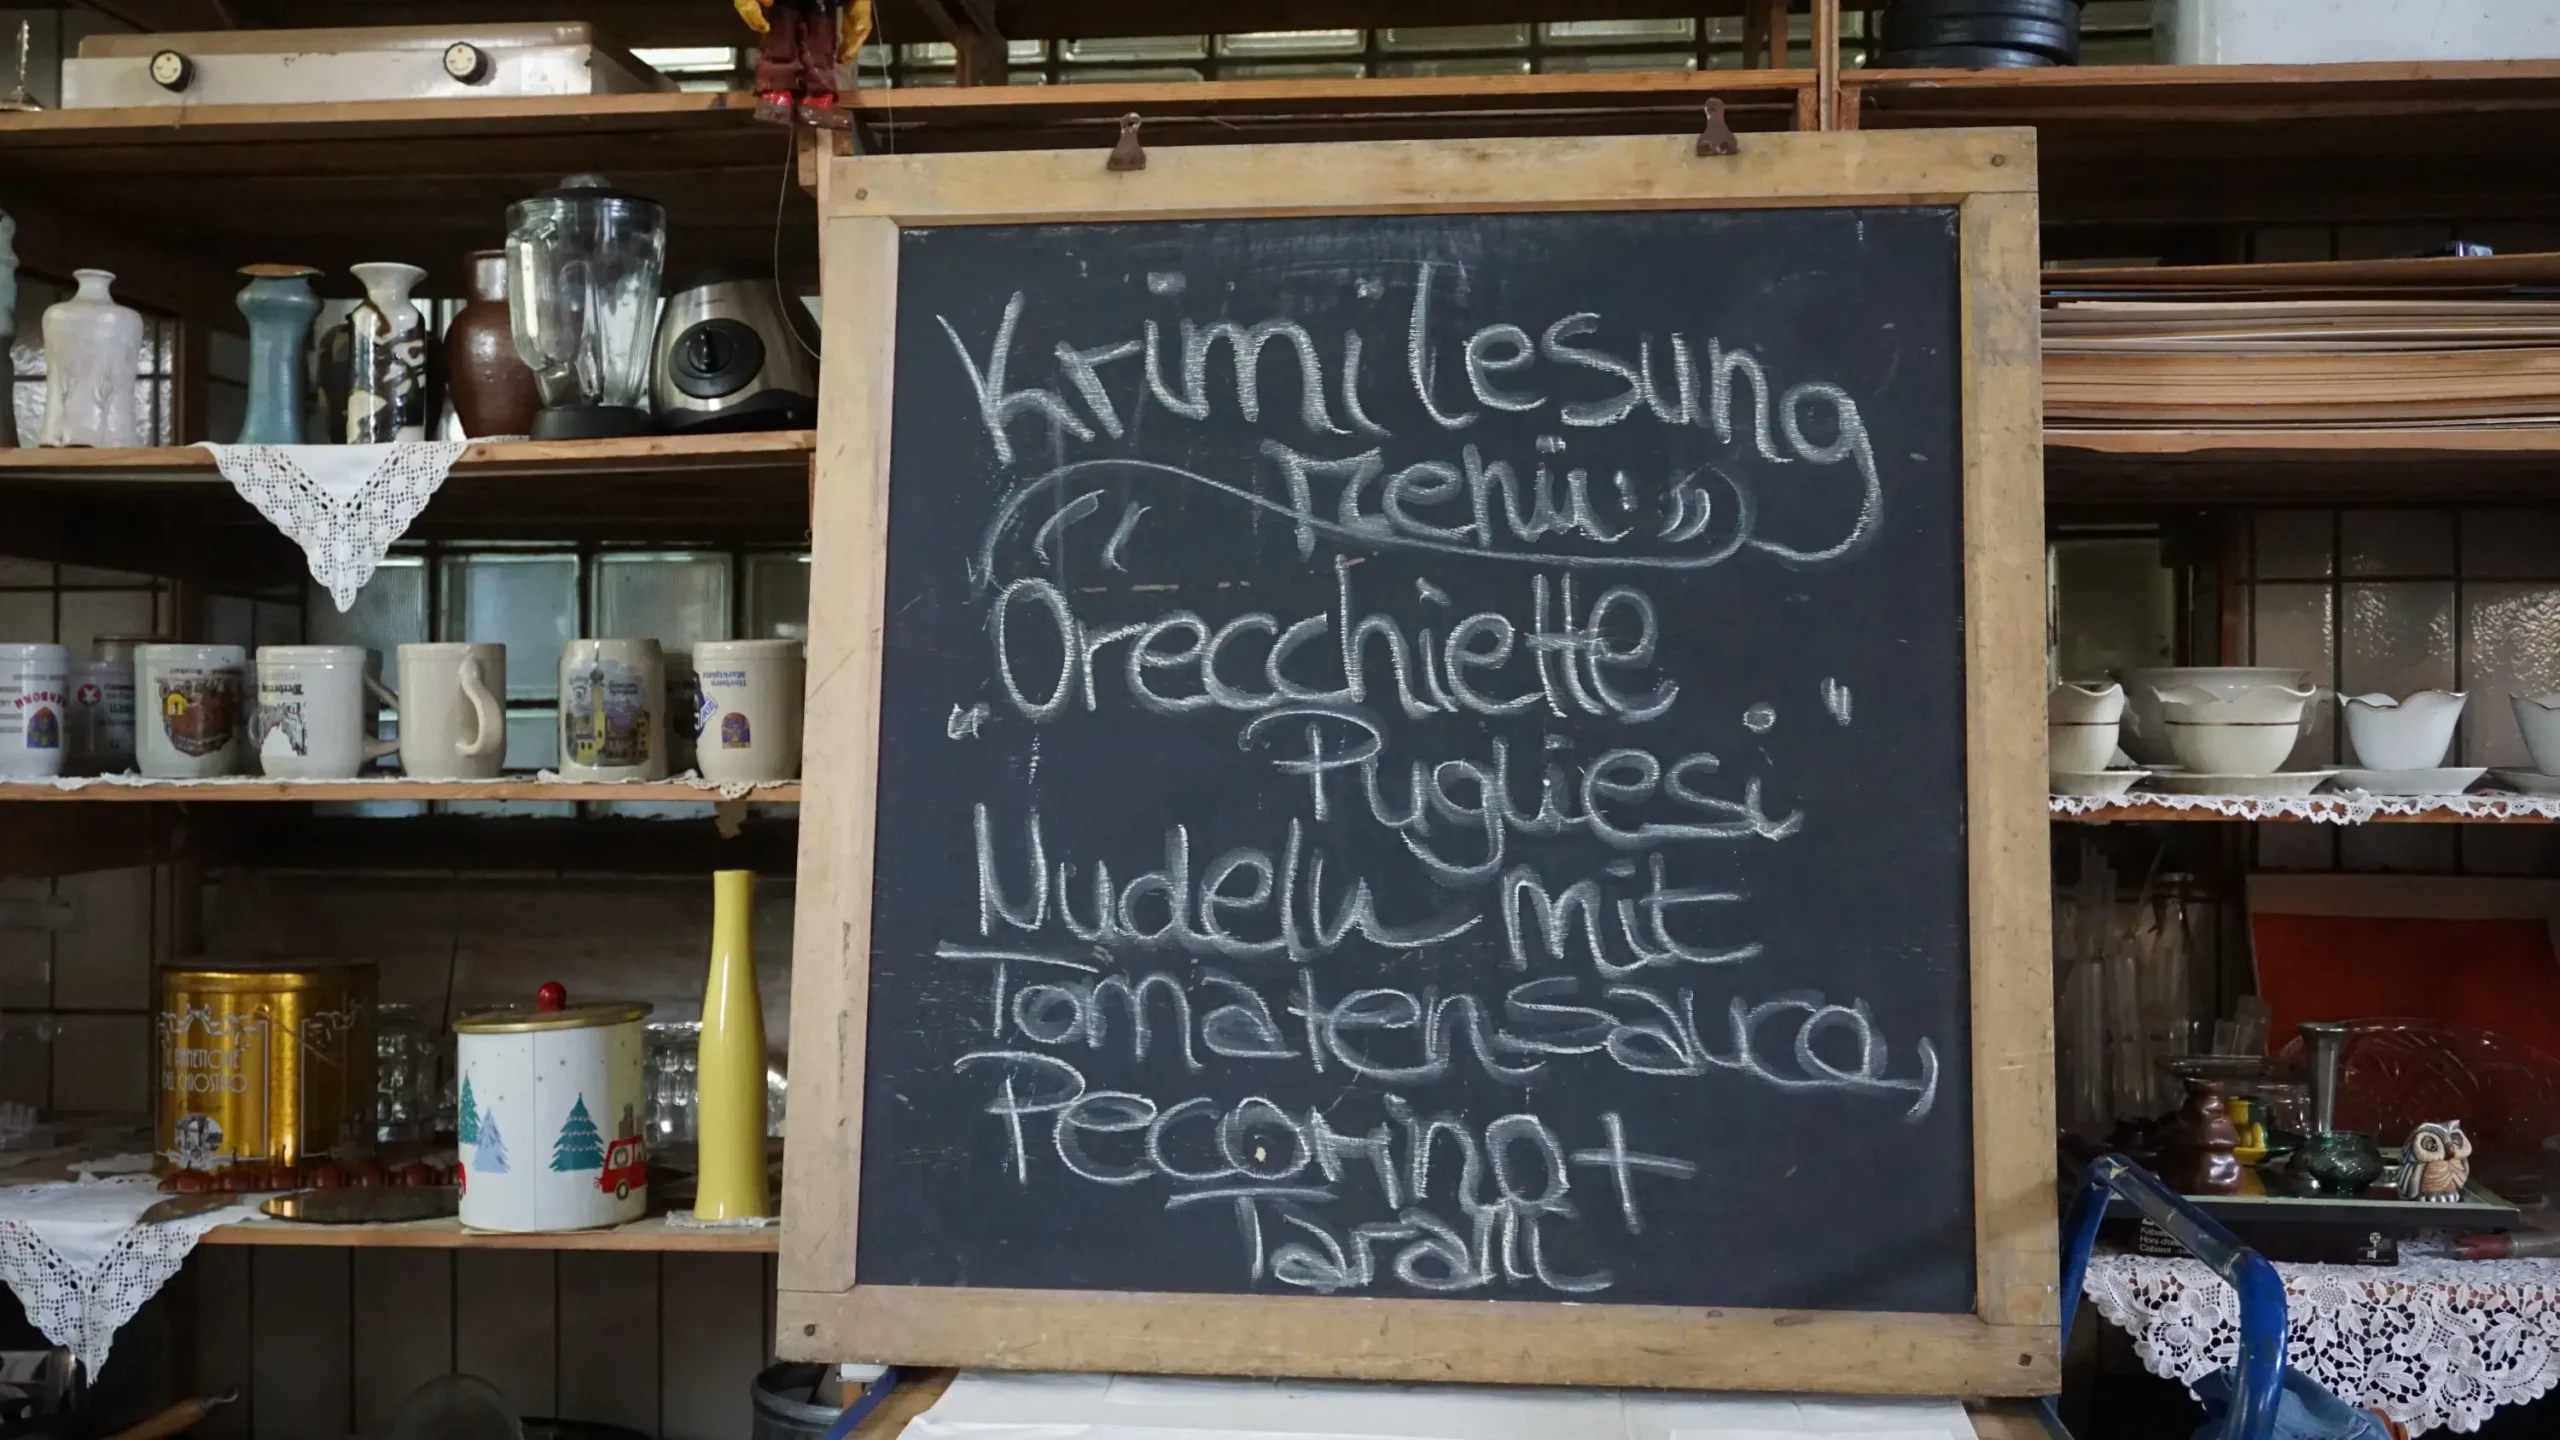 Krimilesung
Menü:
Orecchiette
Pugliesi
Nudeln mit
Tomatensauce,
Pecorino +
Taralli
IL PANETTONE
DEL CHIOSTRO
Herborn
Marktplatz